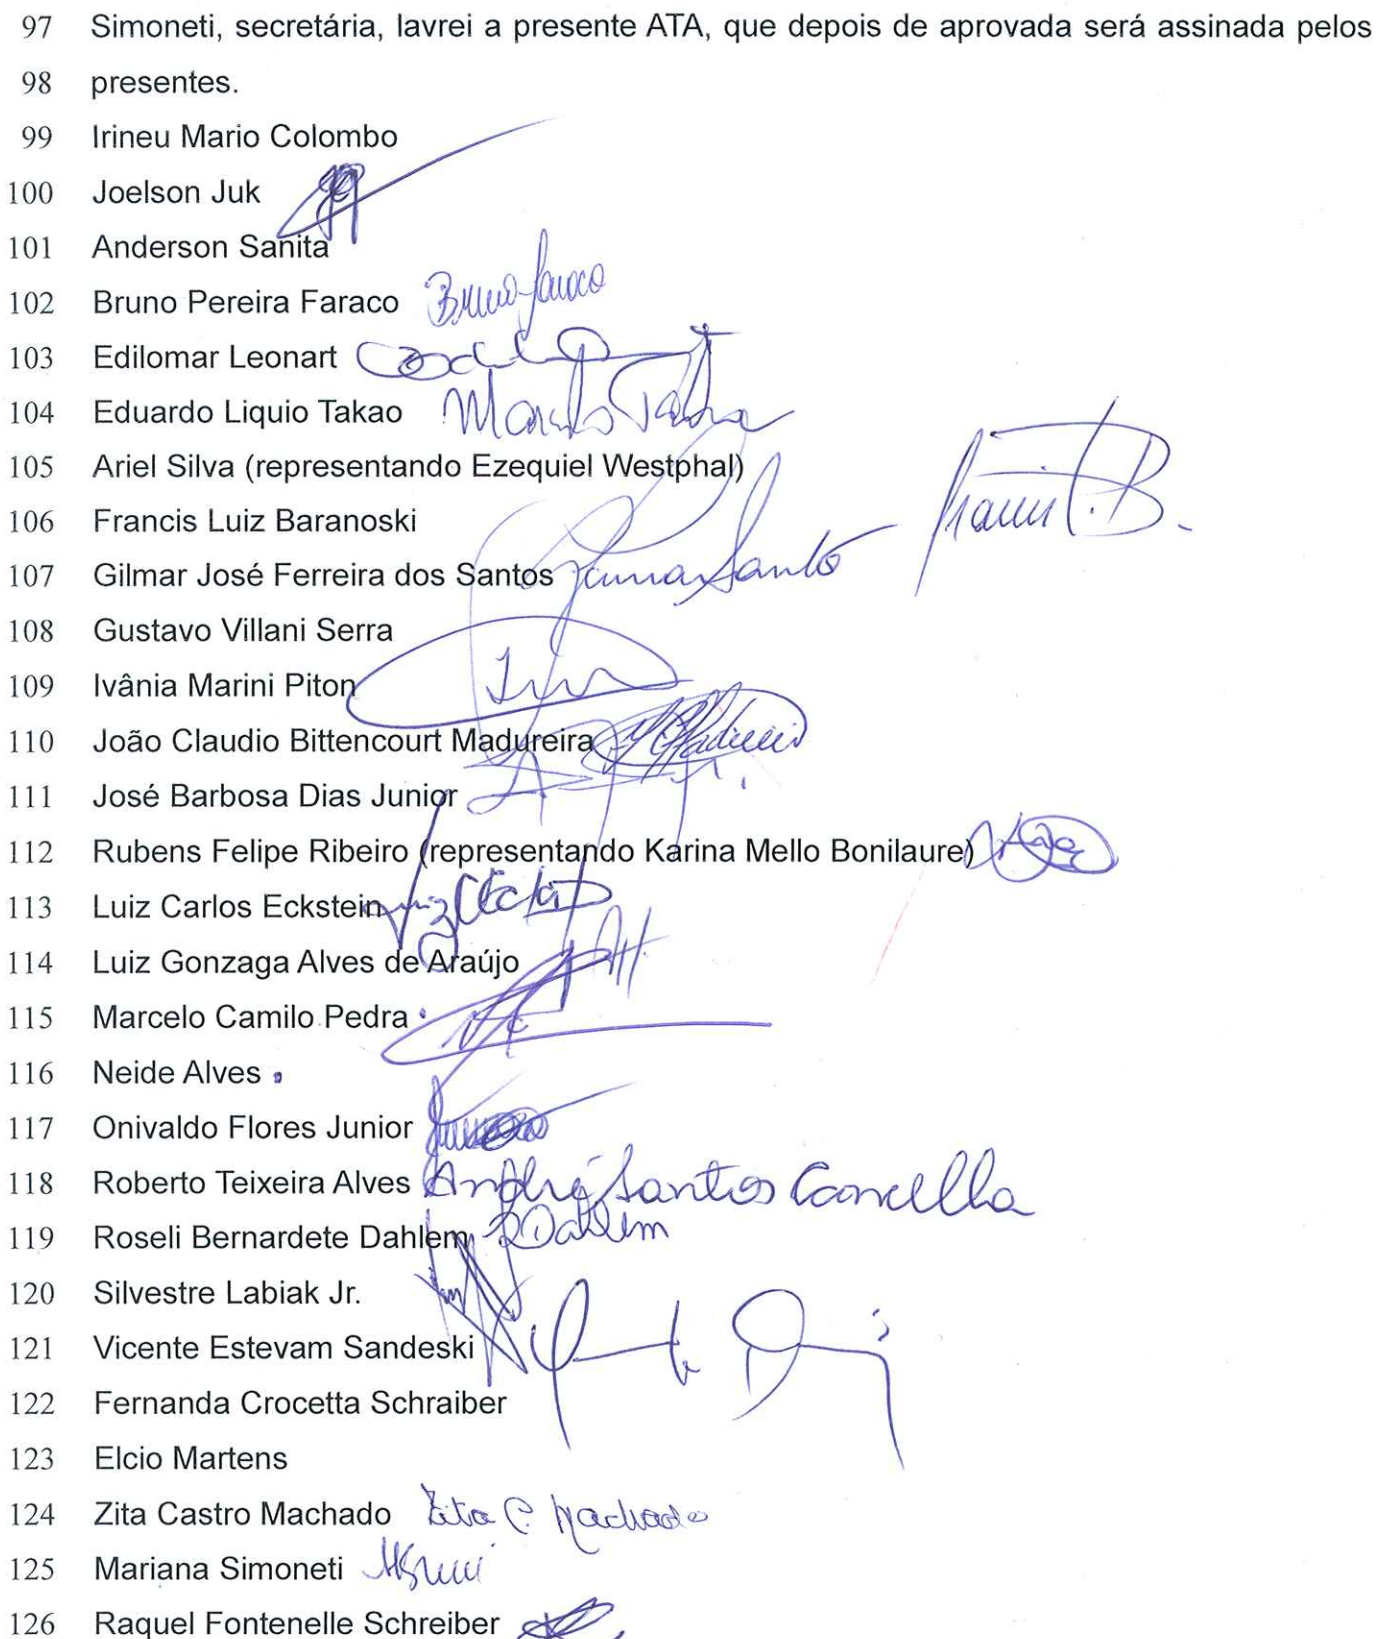 97 Simoneti, secretária, lavrei a presente ATA, que depois de aprovada será assinada pelos
98 presentes.
99 Irineu Mario Colombo
100 Joelson Juk
101 Anderson Sanita
102 Bruno Pereira Faraco Bruno Faraco
103 Edilomar Leonart
104 Eduardo Liquio Takao
105 Ariel Silva (representando Ezequiel Westphal)
106 Francis Luiz Baranoski
107 Gilmar José Ferreira dos Santos
108 Gustavo Villani Serra
109 Ivânia Marini Piton
110 João Claudio Bittencourt Madureira
111 José Barbosa Dias Junior
112 Rubens Felipe Ribeiro (representando Karina Mello Bonilaure)
113 Luiz Carlos Eckstein
114 Luiz Gonzaga Alves de Araújo
115 Marcelo Camilo Pedra
116 Neide Alves
117 Onivaldo Flores Junior
118 Roberto Teixeira Alves André Santos
119 Roseli Bernardete Dahlem RDahlem
120 Silvestre Labiak Jr.
121 Vicente Estevam Sandeski
122 Fernanda Crocetta Schraiber
123 Elcio Martens
124 Zita Castro Machado Zita C. Machado
125 Mariana Simoneti
126 Raquel Fontenelle Schreiber